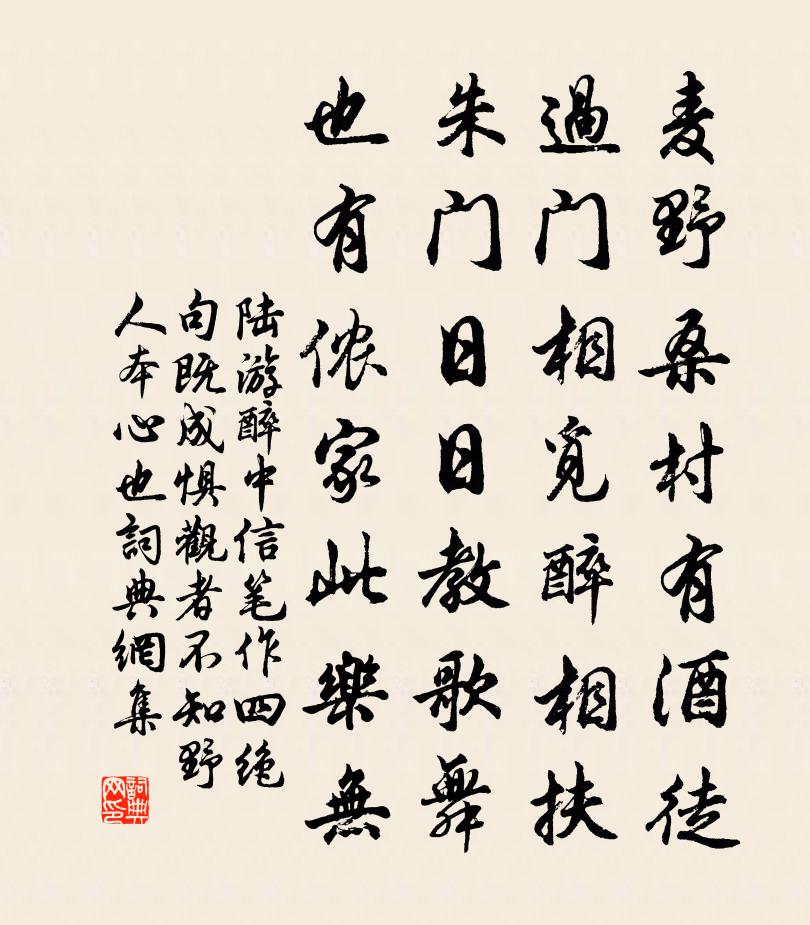 麦野桑村有酒徒
過门相觅醉相扶
朱门日日教歌舞
也有侬家此樂無
陆游醉中信笔作四绝
句既成惧觀者不知野
人本心也詞典網集
詞典
网印